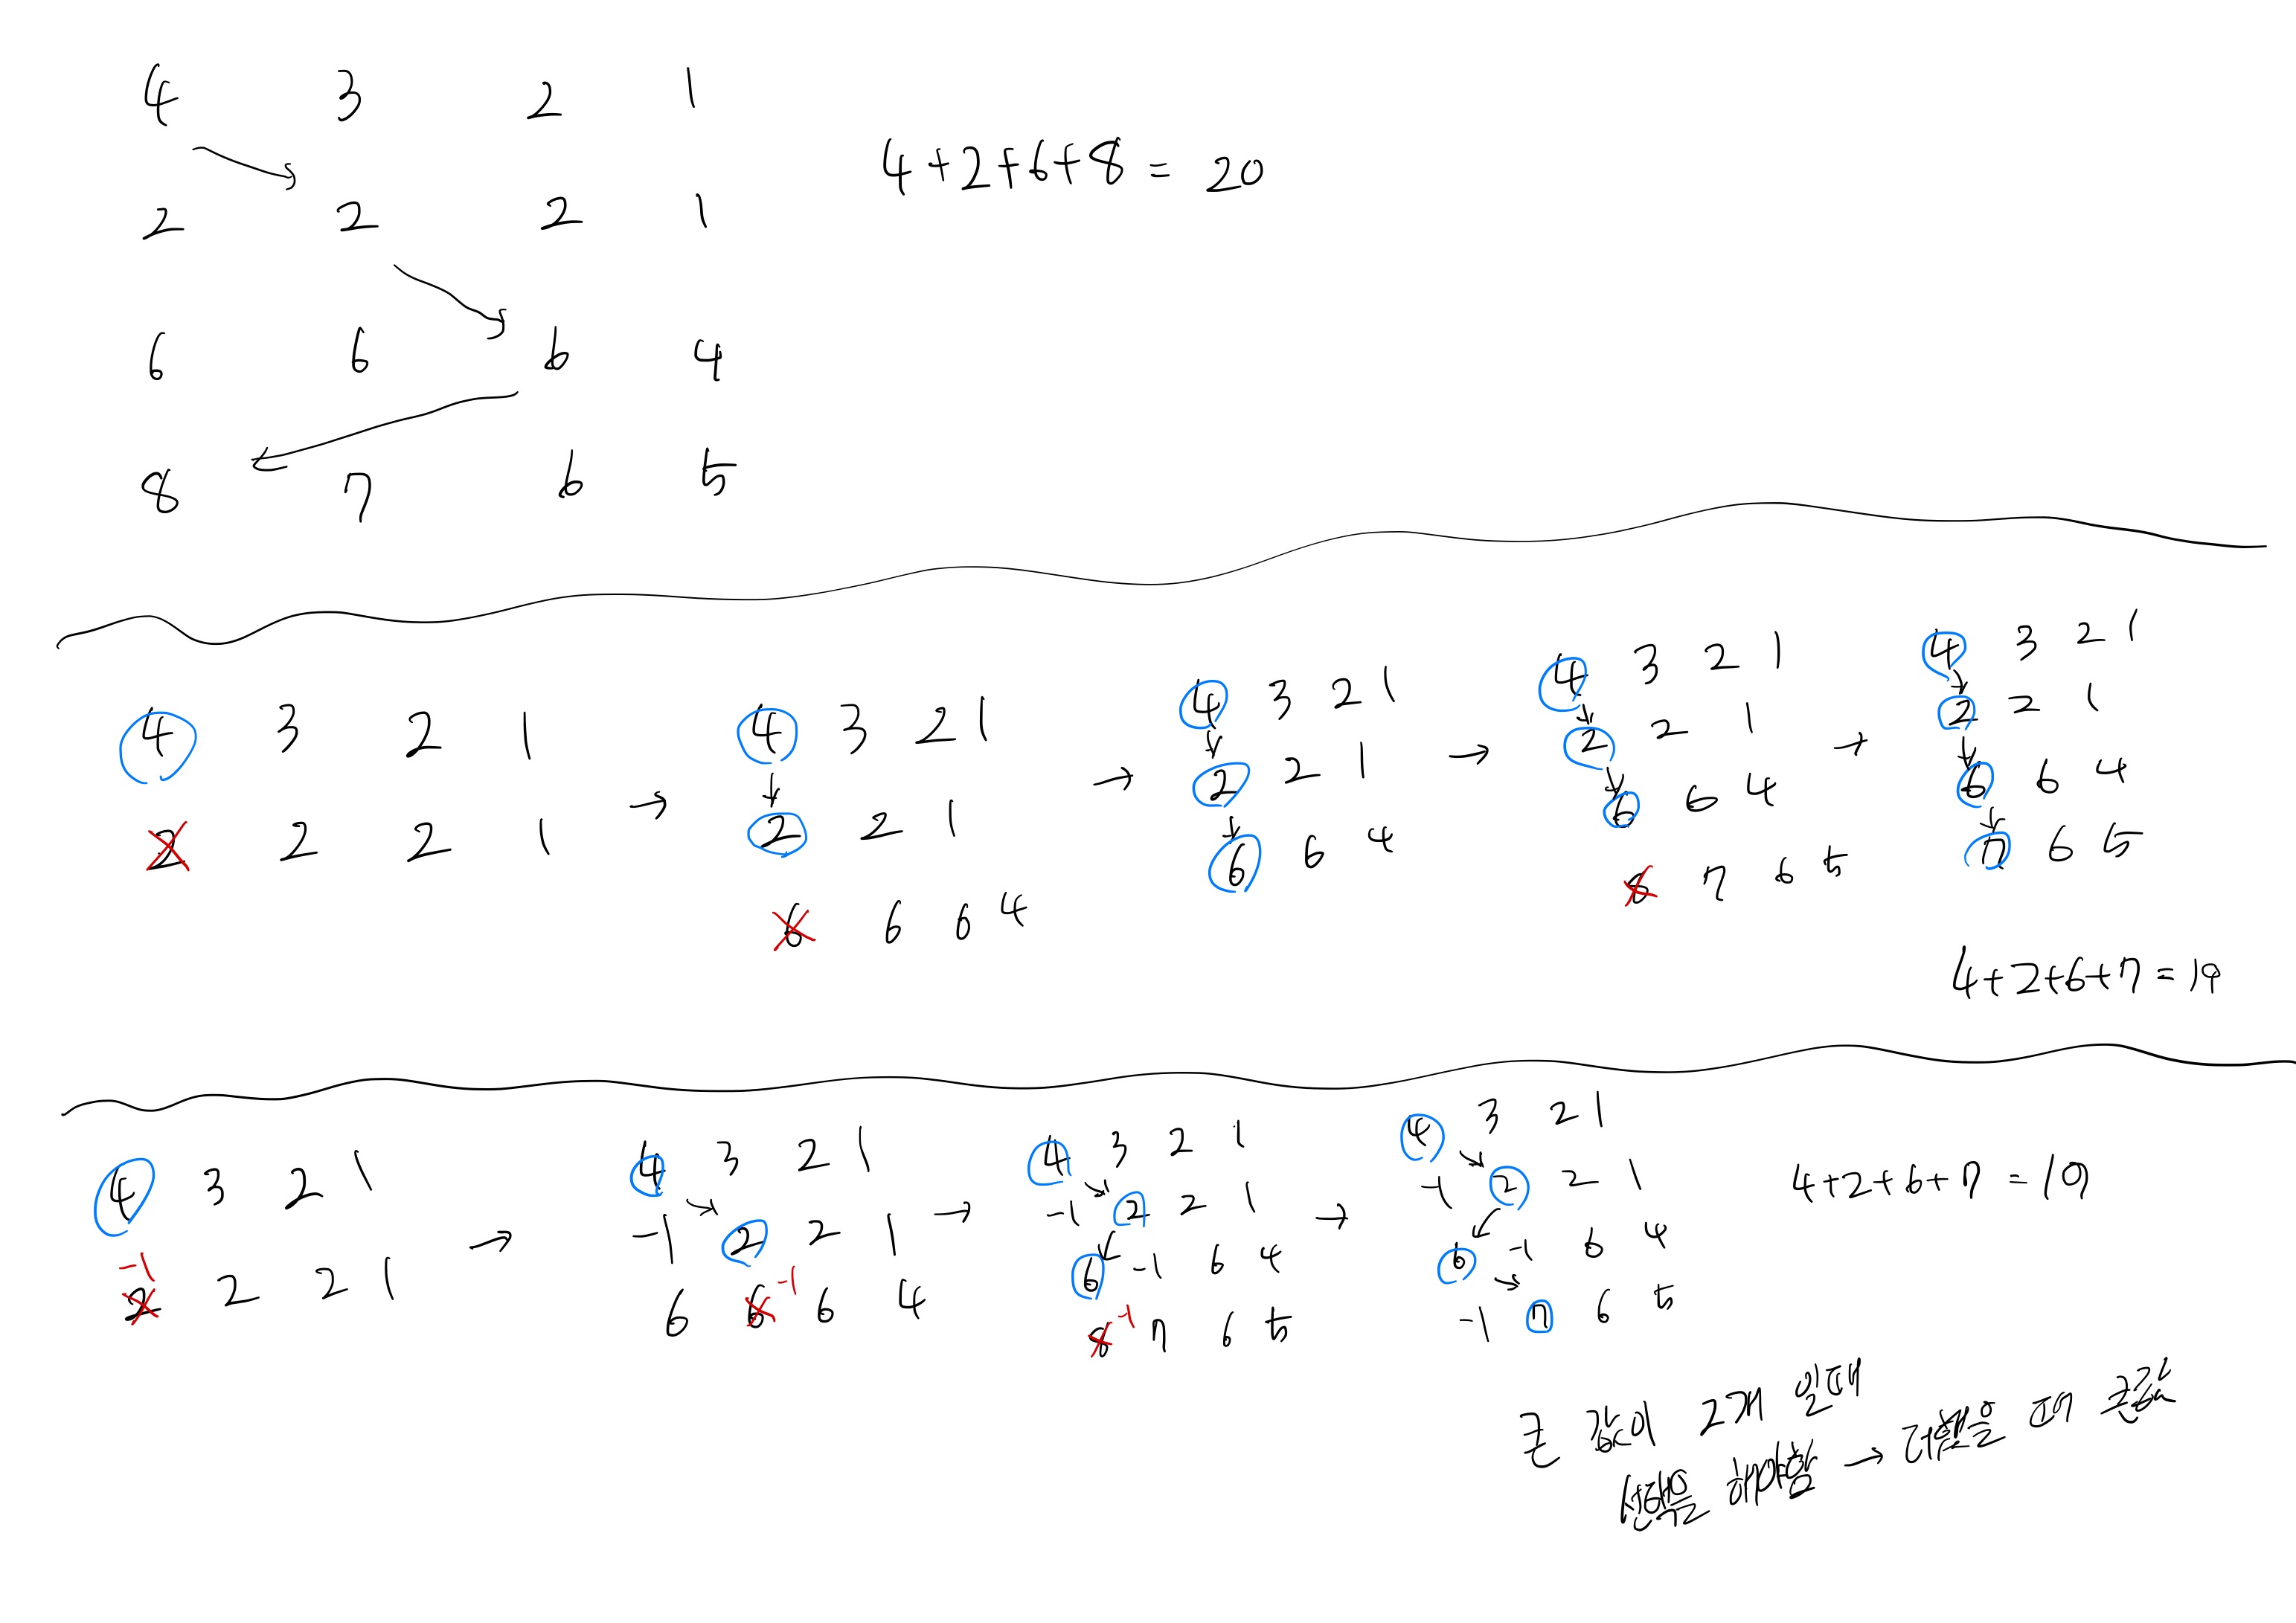 4 3 2 1
4+2+6+8 = 20
2 2 2 1
6 6 6 4
8 7 6 5
4 3 2 1
2 2 2 1
→
4 3 2 1
2 2 1
6 6 6 4
→
4 3 2 1
2 2 1
6 6 4
→
4 3 2 1
2 2 1
6 6 4
8 7 6 5
→
4 3 2 1
2 2 1
6 6 4
7 6 5
4+2+6+7=19
4 3 2 1
-1
2 2 2 1
→
4 3 2 1
-1 2 2 1
6 6 -1 6 4
→
4 3 2 1
-1 2 2 1
6 -1 6 4
8 -1 7 6 5
→
4 3 2 1
-1 2 2 1
6 -1 6 4
-1 7 6 5
4+2+6+7 = 19
큰 값이 2개 일때
선택을 해야함 →